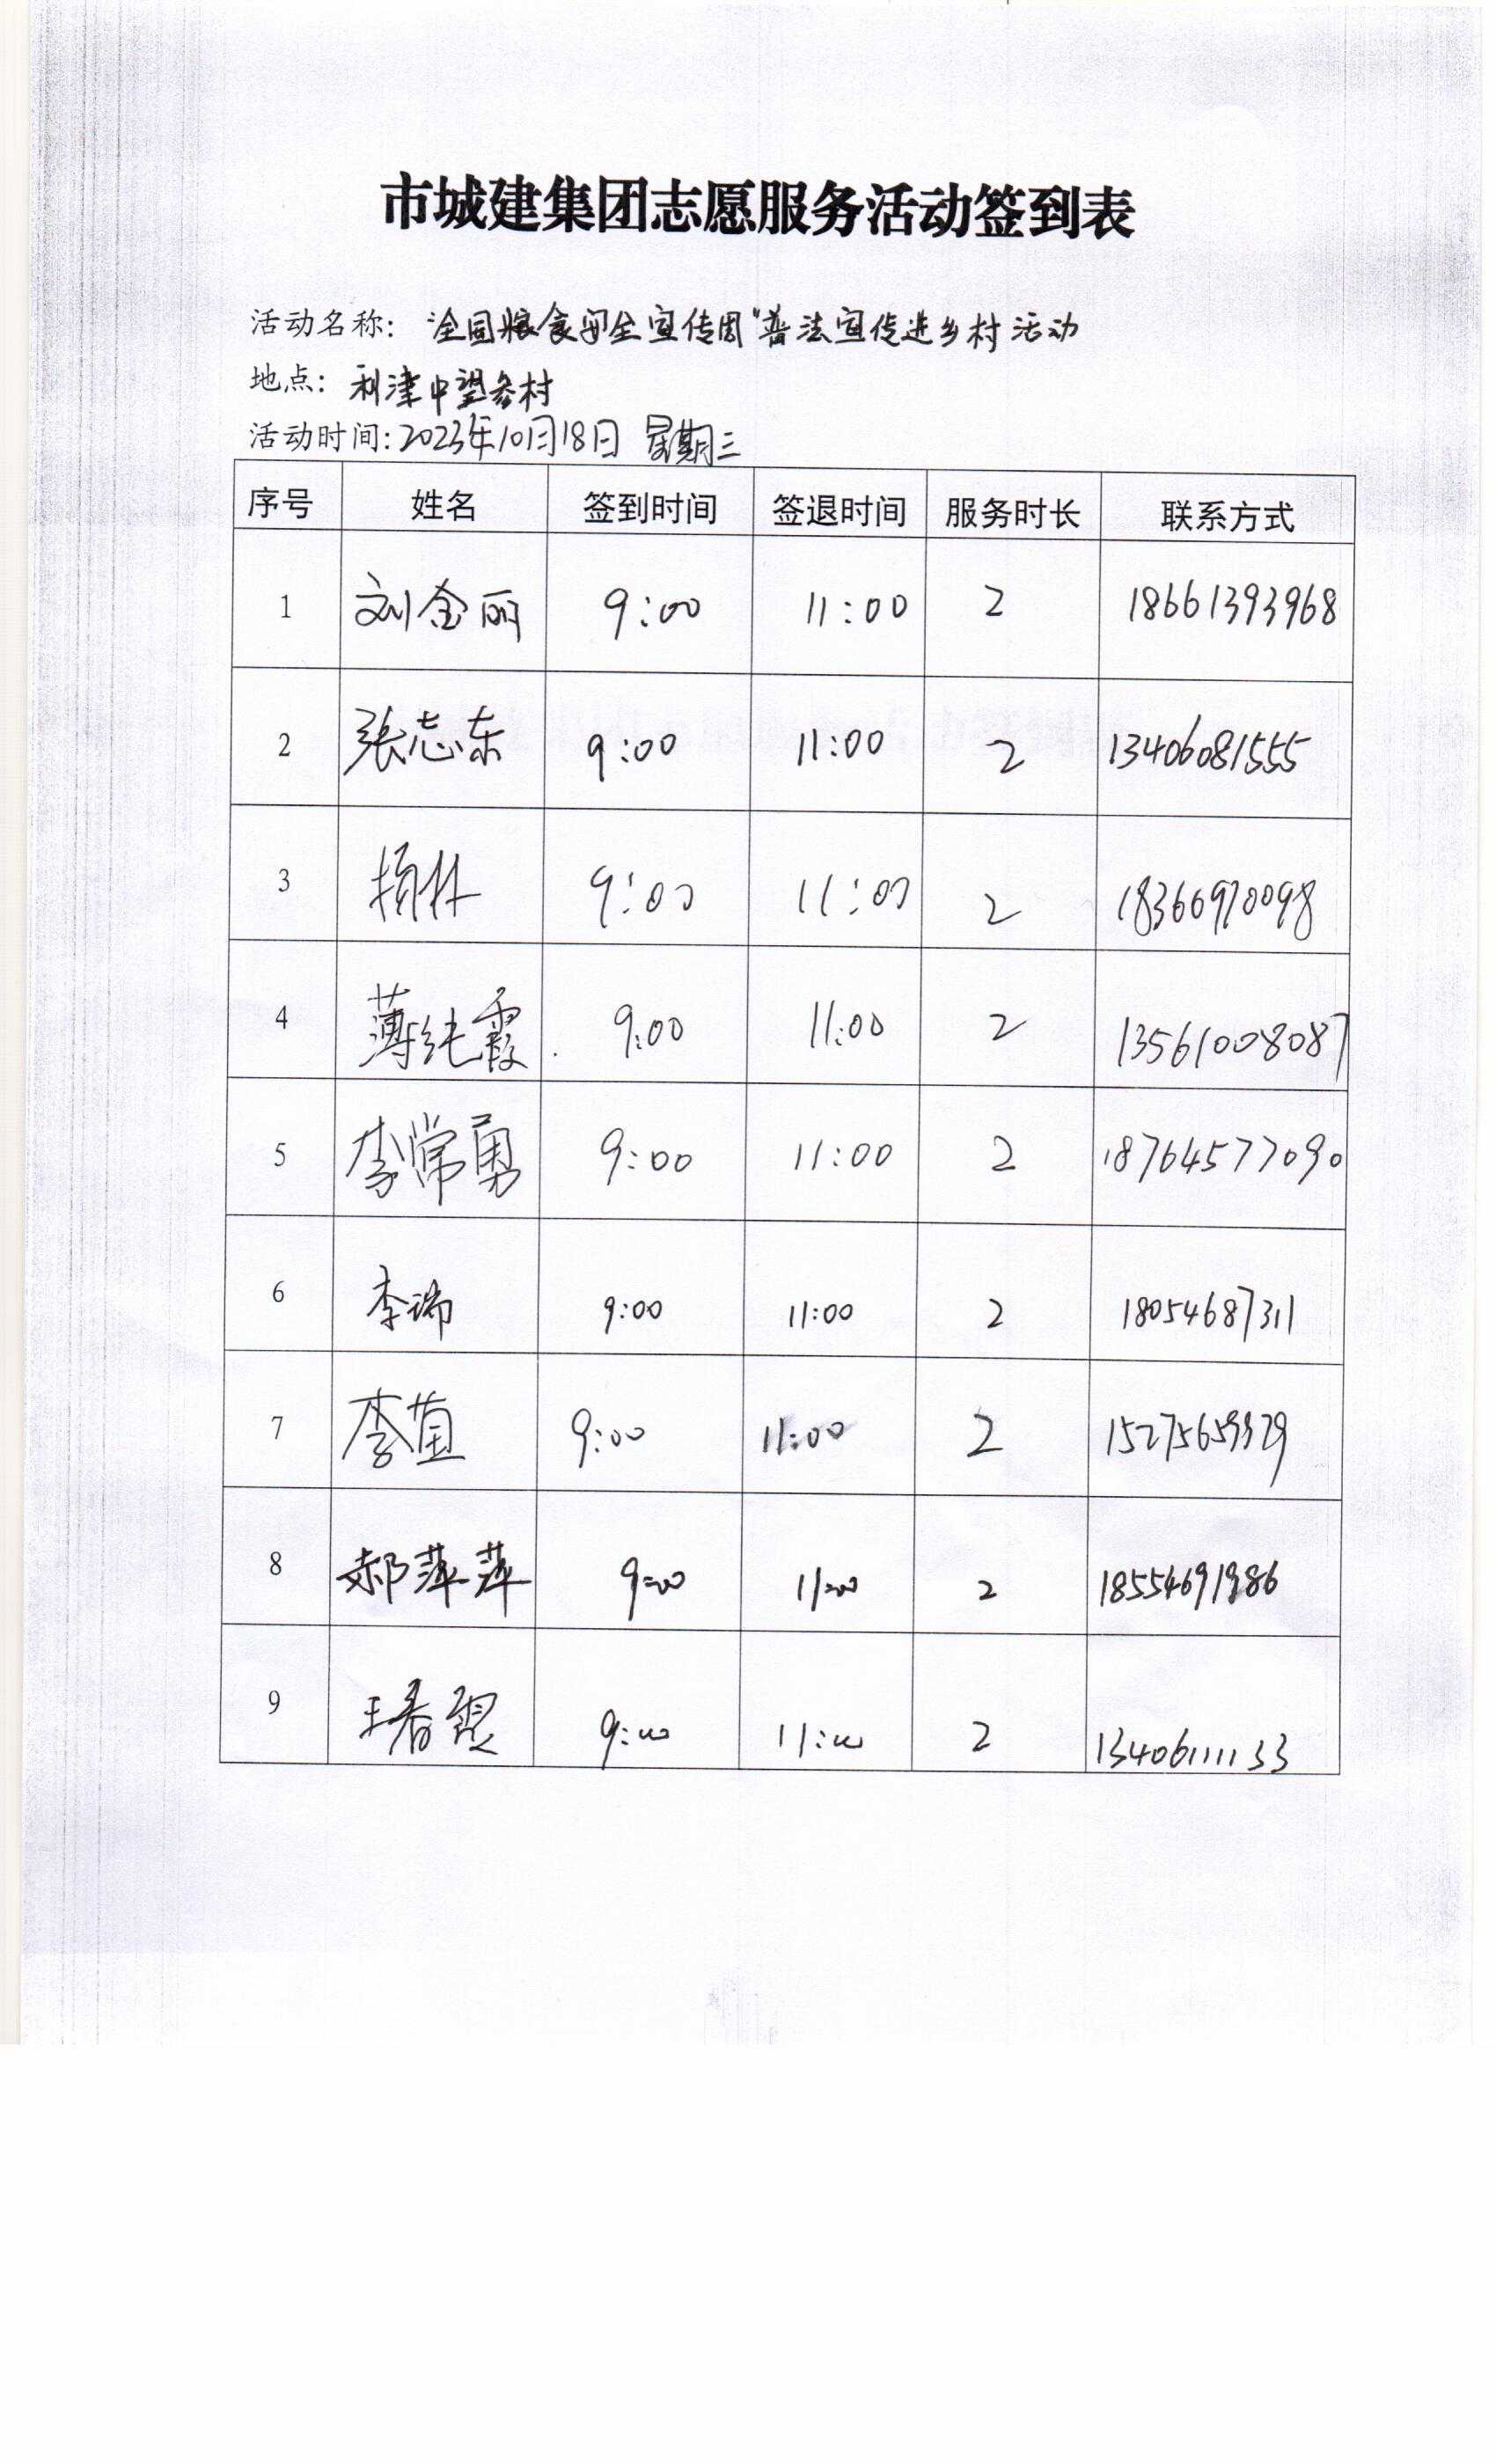 市城建集团志愿服务活动签到表
活动名称: "全国粮食安全宣传周"普法宣传进乡村活动
地点: 利津中望参村
活动时间: 2023年10月18日 星期三
序号 姓名 签到时间 签退时间 服务时长 联系方式
1 刘金丽 9:00 11:00 2 18661393968
2 张志东 9:00 11:00 2 13406081555
3 9:00 11:00 2 18366970098
4 薄纯霞 9:00 11:00 2 13561008087
5 李常勇 9:00 11:00 2 18764577090
6 李瑞 9:00 11:00 2 18054687311
7 李萱 9:00 11:00 2
8 郝萍萍 9:00 11:00 2 18554691986
9 王春霞 9:00 11:00 2 13406111133